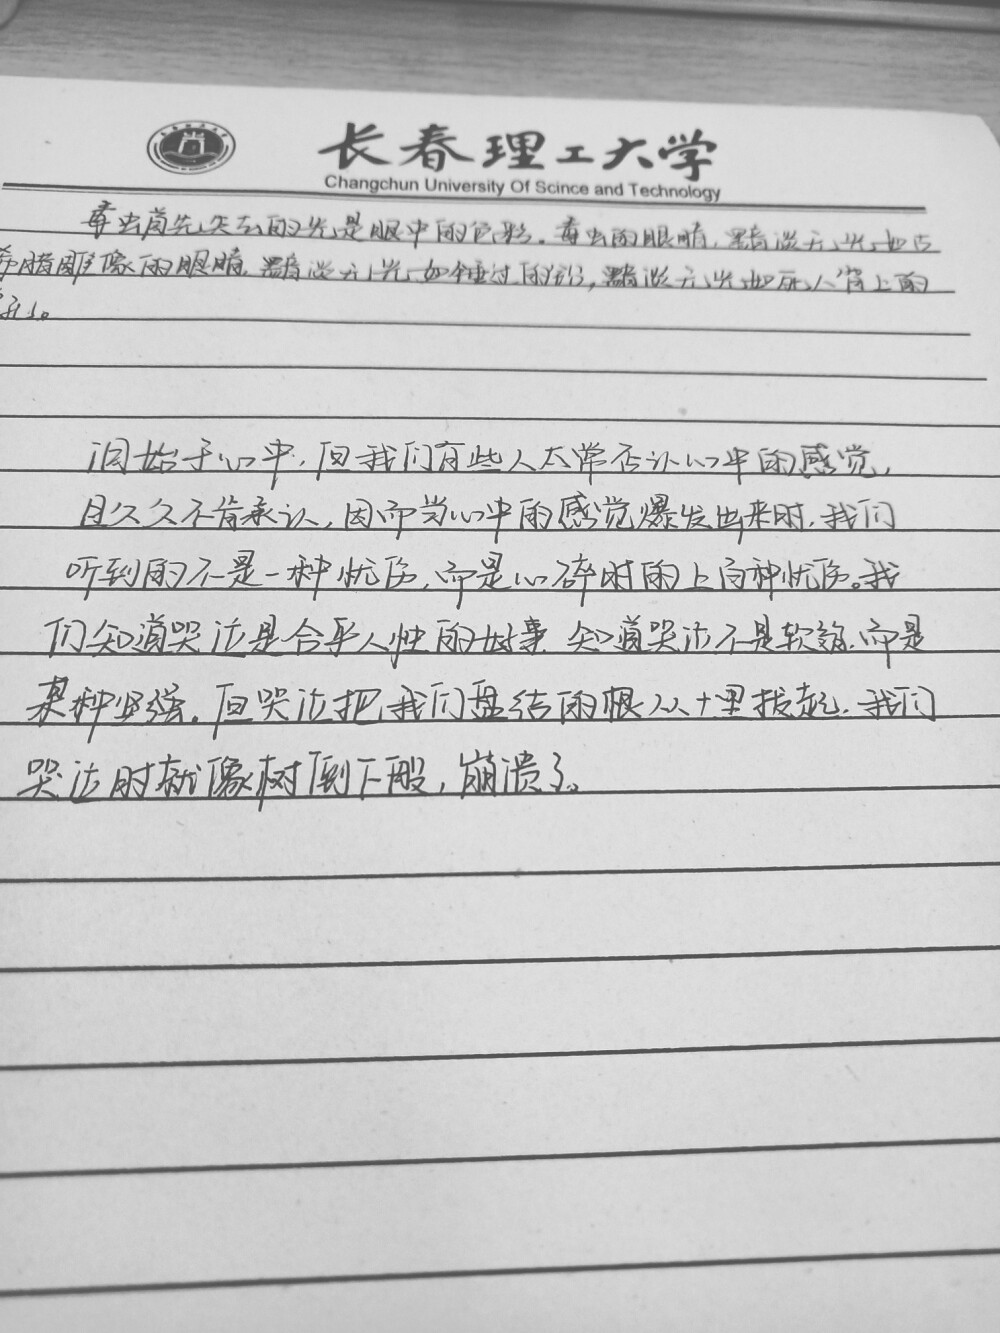 长春理工大学
Changchun University Of Scince and Technology
毒虫首先失去的光是眼中的色彩。毒虫的眼睛,黯淡无光,如古
希腊雕像的眼睛,黯淡无光,如锤过的铅,黯淡无光,如死人背上的
泪始于心中,但我们有些人太常否认心中的感觉,
且久久不肯承认,因而当心中的感觉爆发出来时,我们
听到的不是一种忧伤,而是心碎时的上百种忧伤。我
们知道哭泣是合乎人性的好事,知道哭泣不是软弱,而是
某种坚强。但哭泣把我们盘结的根从土里拔起,我们
哭泣时就像树倒下般,崩溃了。